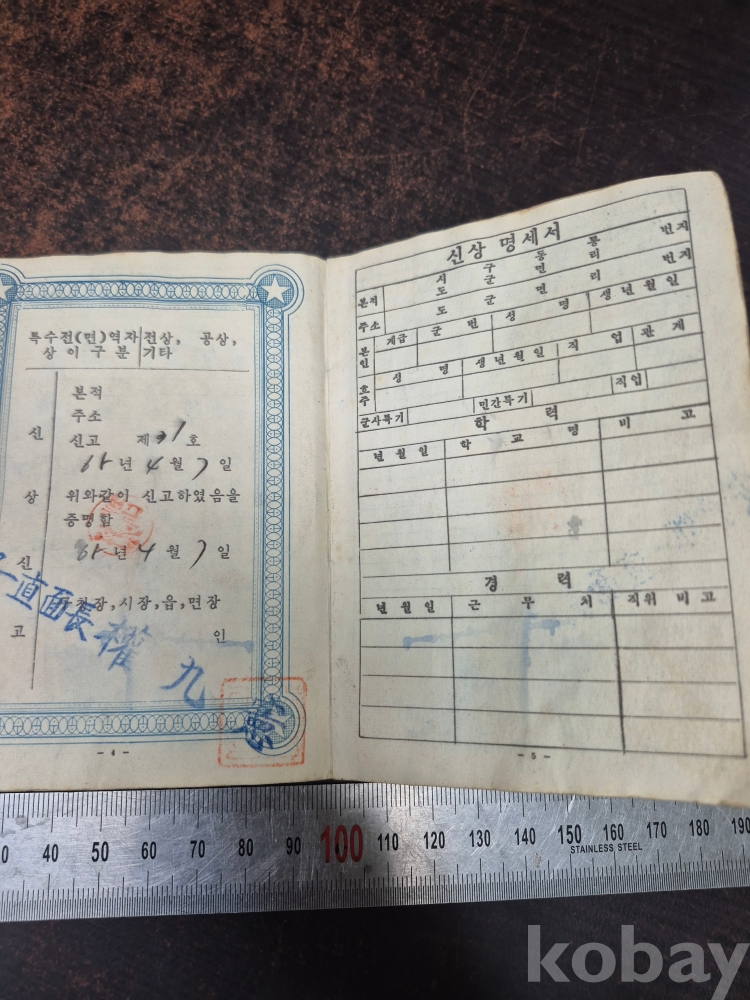 특수전(먼)역자 전상, 공상,
상이구분 기타
본적
주소
신고 제 호
65년 4월 7일
위와같이 신고하였음을
증명함
65년 4월 7일
청장, 시장, 읍, 면장
인
신
상
신
고
直面長 權 九
- 4 -
신상 명세서
본적 시 구 동 통 번지
도 군 면 리
주소 도 군 면 리 번지
본인 계급 군번 성명 생년월일
호주 성명 생년월일 직업 관계
군사특기 민간특기 직업
학력
년월일 학교명 비고
경력
년월일 근무처 직위 비고
- 5 -
30 40 50 60 70 80 90 100 110 120 130 140 150 160 170 180 190
STAINLESS STEEL
kobay